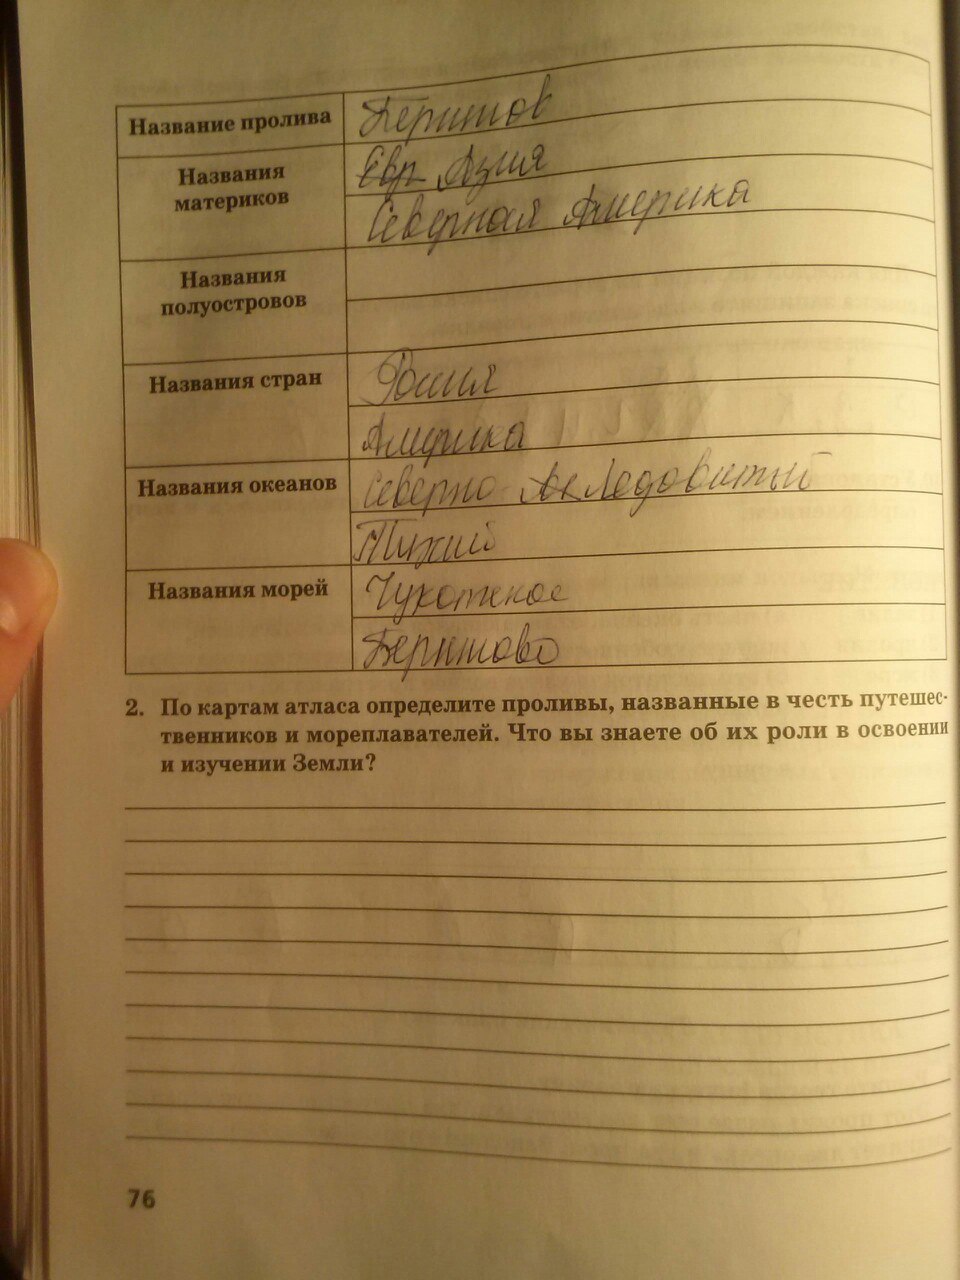 Название пролива Берингов
Названия материков Евр Азия
Северная Америка
Названия полуостровов
Названия стран Россия
Америка
Названия океанов Северно Ледовитый
Тихий
Названия морей Чукотское
Берингово
2. По картам атласа определите проливы, названные в честь путешес-
твенников и мореплавателей. Что вы знаете об их роли в освоении
и изучении Земли?
76